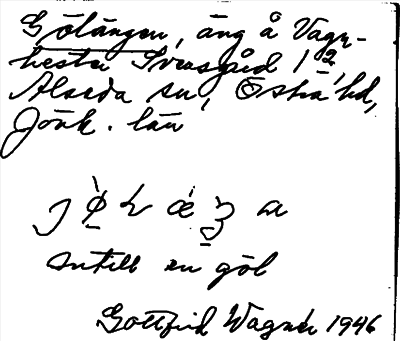 Gölängen, äng å Vagn-
hester Svensgård 1²,
Alseda sn, Östra hd,
Jönk. län
intill en göl
Gottfrid Wagnér 1946